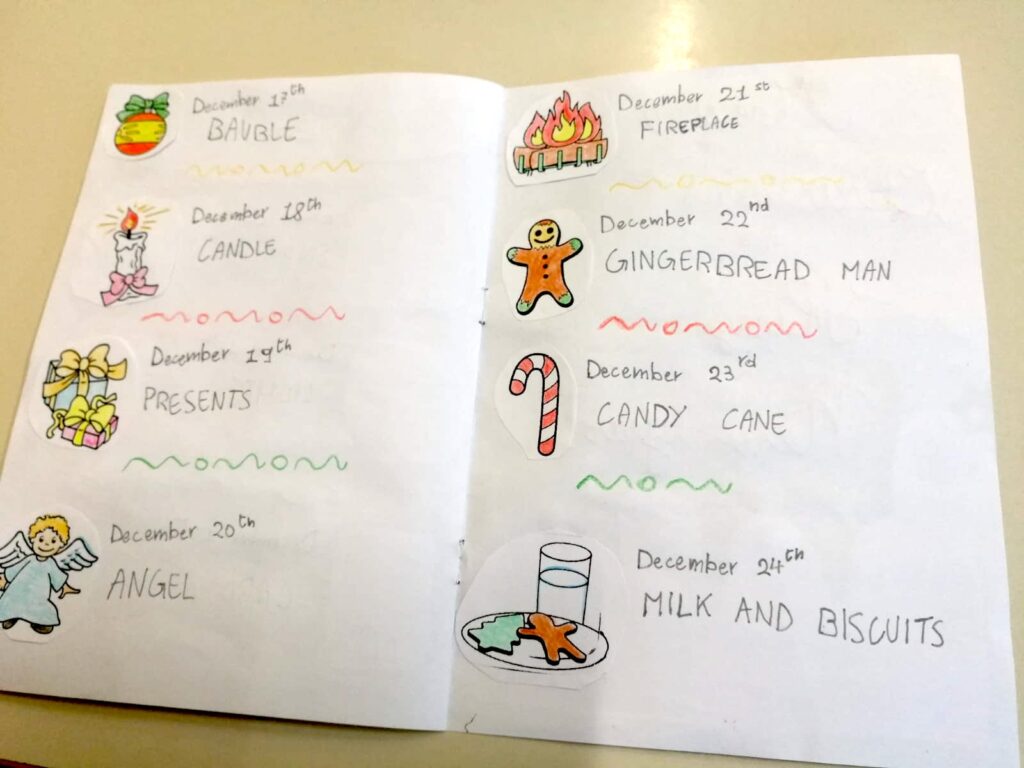 December 17th
BAUBLE
December 18th
CANDLE
December 19th
PRESENTS
December 20th
ANGEL
December 21st
FIREPLACE
December 22nd
GINGERBREAD MAN
December 23rd
CANDY CANE
December 24th
MILK AND BISCUITS